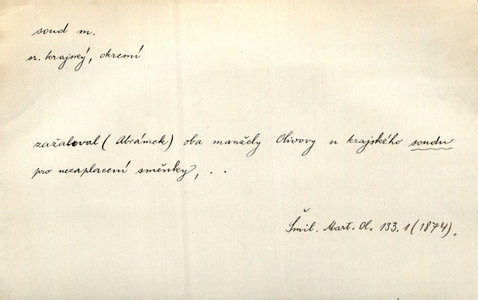 soud m.
sr. krajský, okresní
zažaloval (Abrámek) oba manžely Olivovy u krajského soudu
pro nezaplacení směnky, . .
Šmil. Mart. Ol. 133.1 (1874).